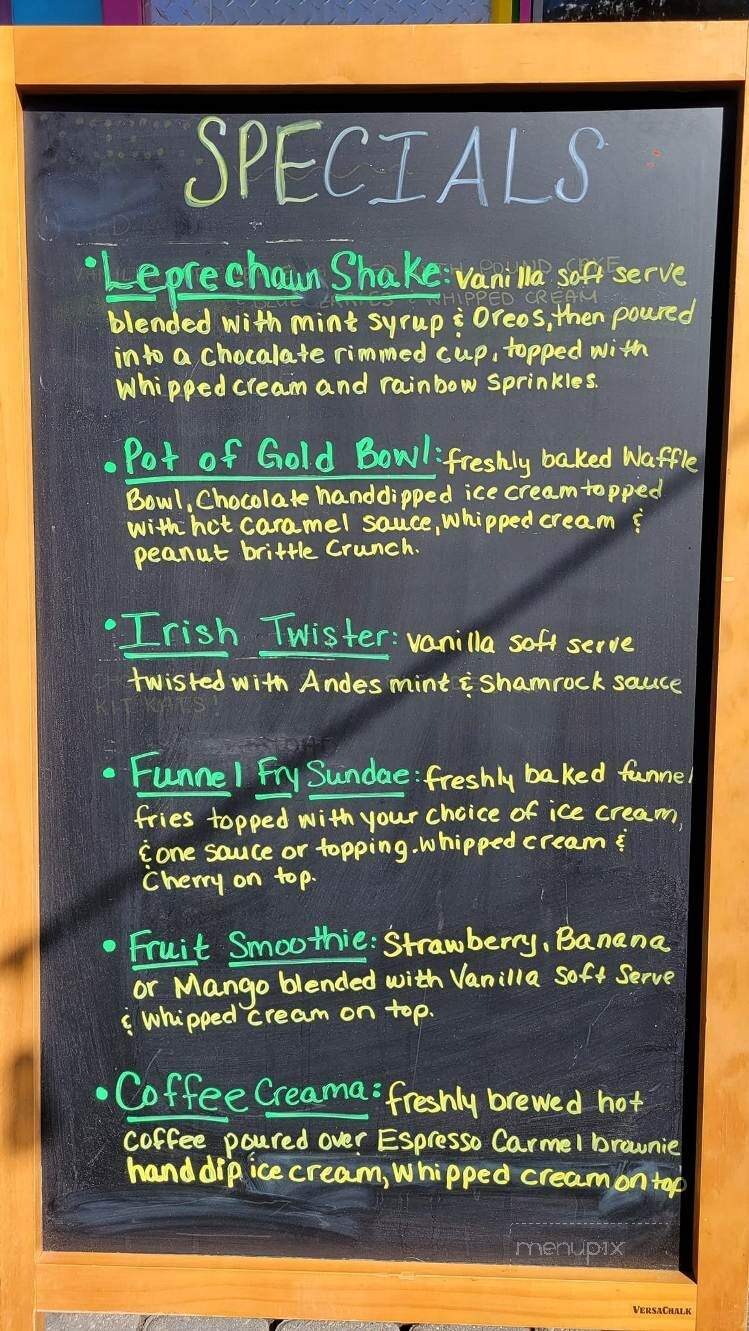 SPECIALS
• Leprechaun Shake: Vanilla soft serve
blended with mint syrup & Oreos, then poured
into a chocalate rimmed cup, topped with
whipped cream and rainbow sprinkles.
• Pot of Gold Bowl: freshly baked Waffle
Bowl, Chocolate handdipped ice cream topped
with hot caramel sauce, whipped cream &
peanut brittle Crunch.
• Irish Twister: vanilla soft serve
twisted with Andes mint & Shamrock sauce
KIT KATS!
• Funnel Fry Sundae: freshly baked funnel
fries topped with your choice of ice cream,
& one sauce or topping. whipped cream &
Cherry on top.
• Fruit Smoothie: Strawberry, Banana
or Mango blended with Vanilla Soft Serve
& whipped cream on top.
• Coffee Creama: freshly brewed hot
coffee poured over Espresso Carmel brownie
hand dip ice cream, whipped cream on top
menupix
VERSACHALK